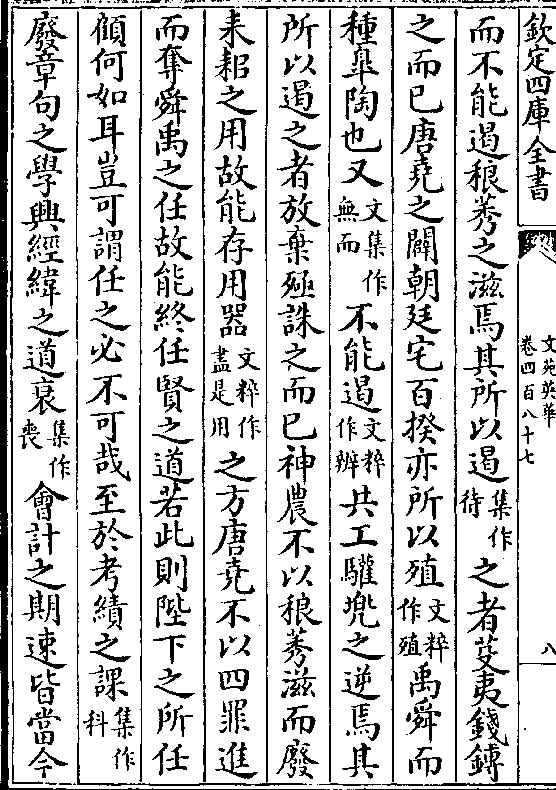 欽定四庫全書
文苑英華
卷四百八十七
八
而不能遏稂莠之滋焉其所以遏集作待之者芟夷錢鎛
之而已唐堯之闢朝廷宅百揆亦所以殖文粹作殖禹舜而
種臯陶也又文集作無而不能遏文粹作辨共工驩兜之逆焉其
所以遏之者放棄殛誅之而已神農不以稂莠滋而廢
耒耜之用故能存用器文粹作盡是用之方唐堯不以四罪進
而奪舜禹之任故能終任賢之道若此則陛下之所任
顧何如耳豈可謂任之必不可哉至於考績之課集作科
廢章句之學興經緯之道衰集作喪會計之期速皆當今